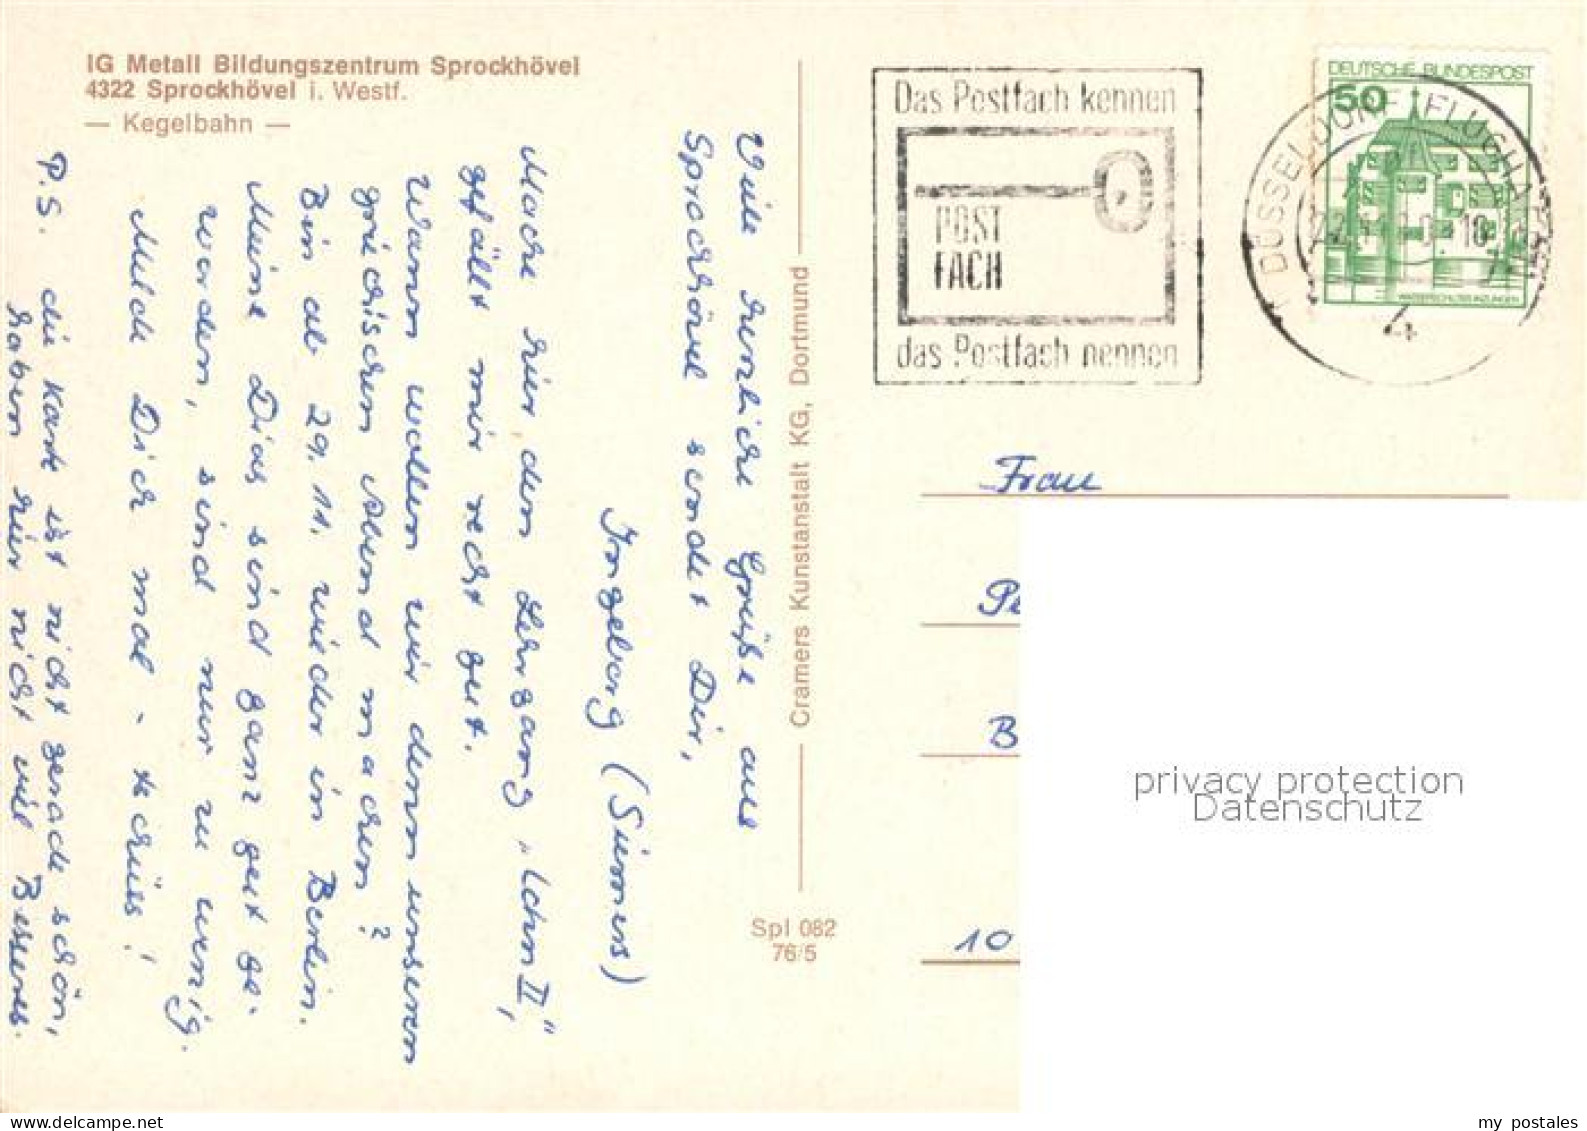 IG Metall Bildungszentrum Sprockhövel
4322 Sprockhövel i. Westf.
— Kegelbahn —
Viele herzliche Grüße aus
Sprockhövel sendet Dir,
Ingeborg (Siemers)
Mache hier den Lehrgang „lohn II",
gefällt mir recht gut.
Wann wollen wir denn unseren
griechischen Abend machen?
Bin ab 29.11. wieder in Berlin.
Meine Dias sind ganz gut ge-
worden, sind nur zu wenig.
Melde Dich mal - tschüss!
P.S. die Karte ist nicht gerade schön,
haben hier nicht viel Besseres.
Cramers Kunstanstalt KG, Dortmund
Spl 082
76/5
Das Postfach kennen
POST
FACH
das Postfach nennen
DEUTSCHE BUNDESPOST
50
WASSERSCHLOSS INZLINGEN
DÜSSELDORF FLUGHAFEN
4
Frau
Pe
B
10
privacy protection
Datenschutz
my postales